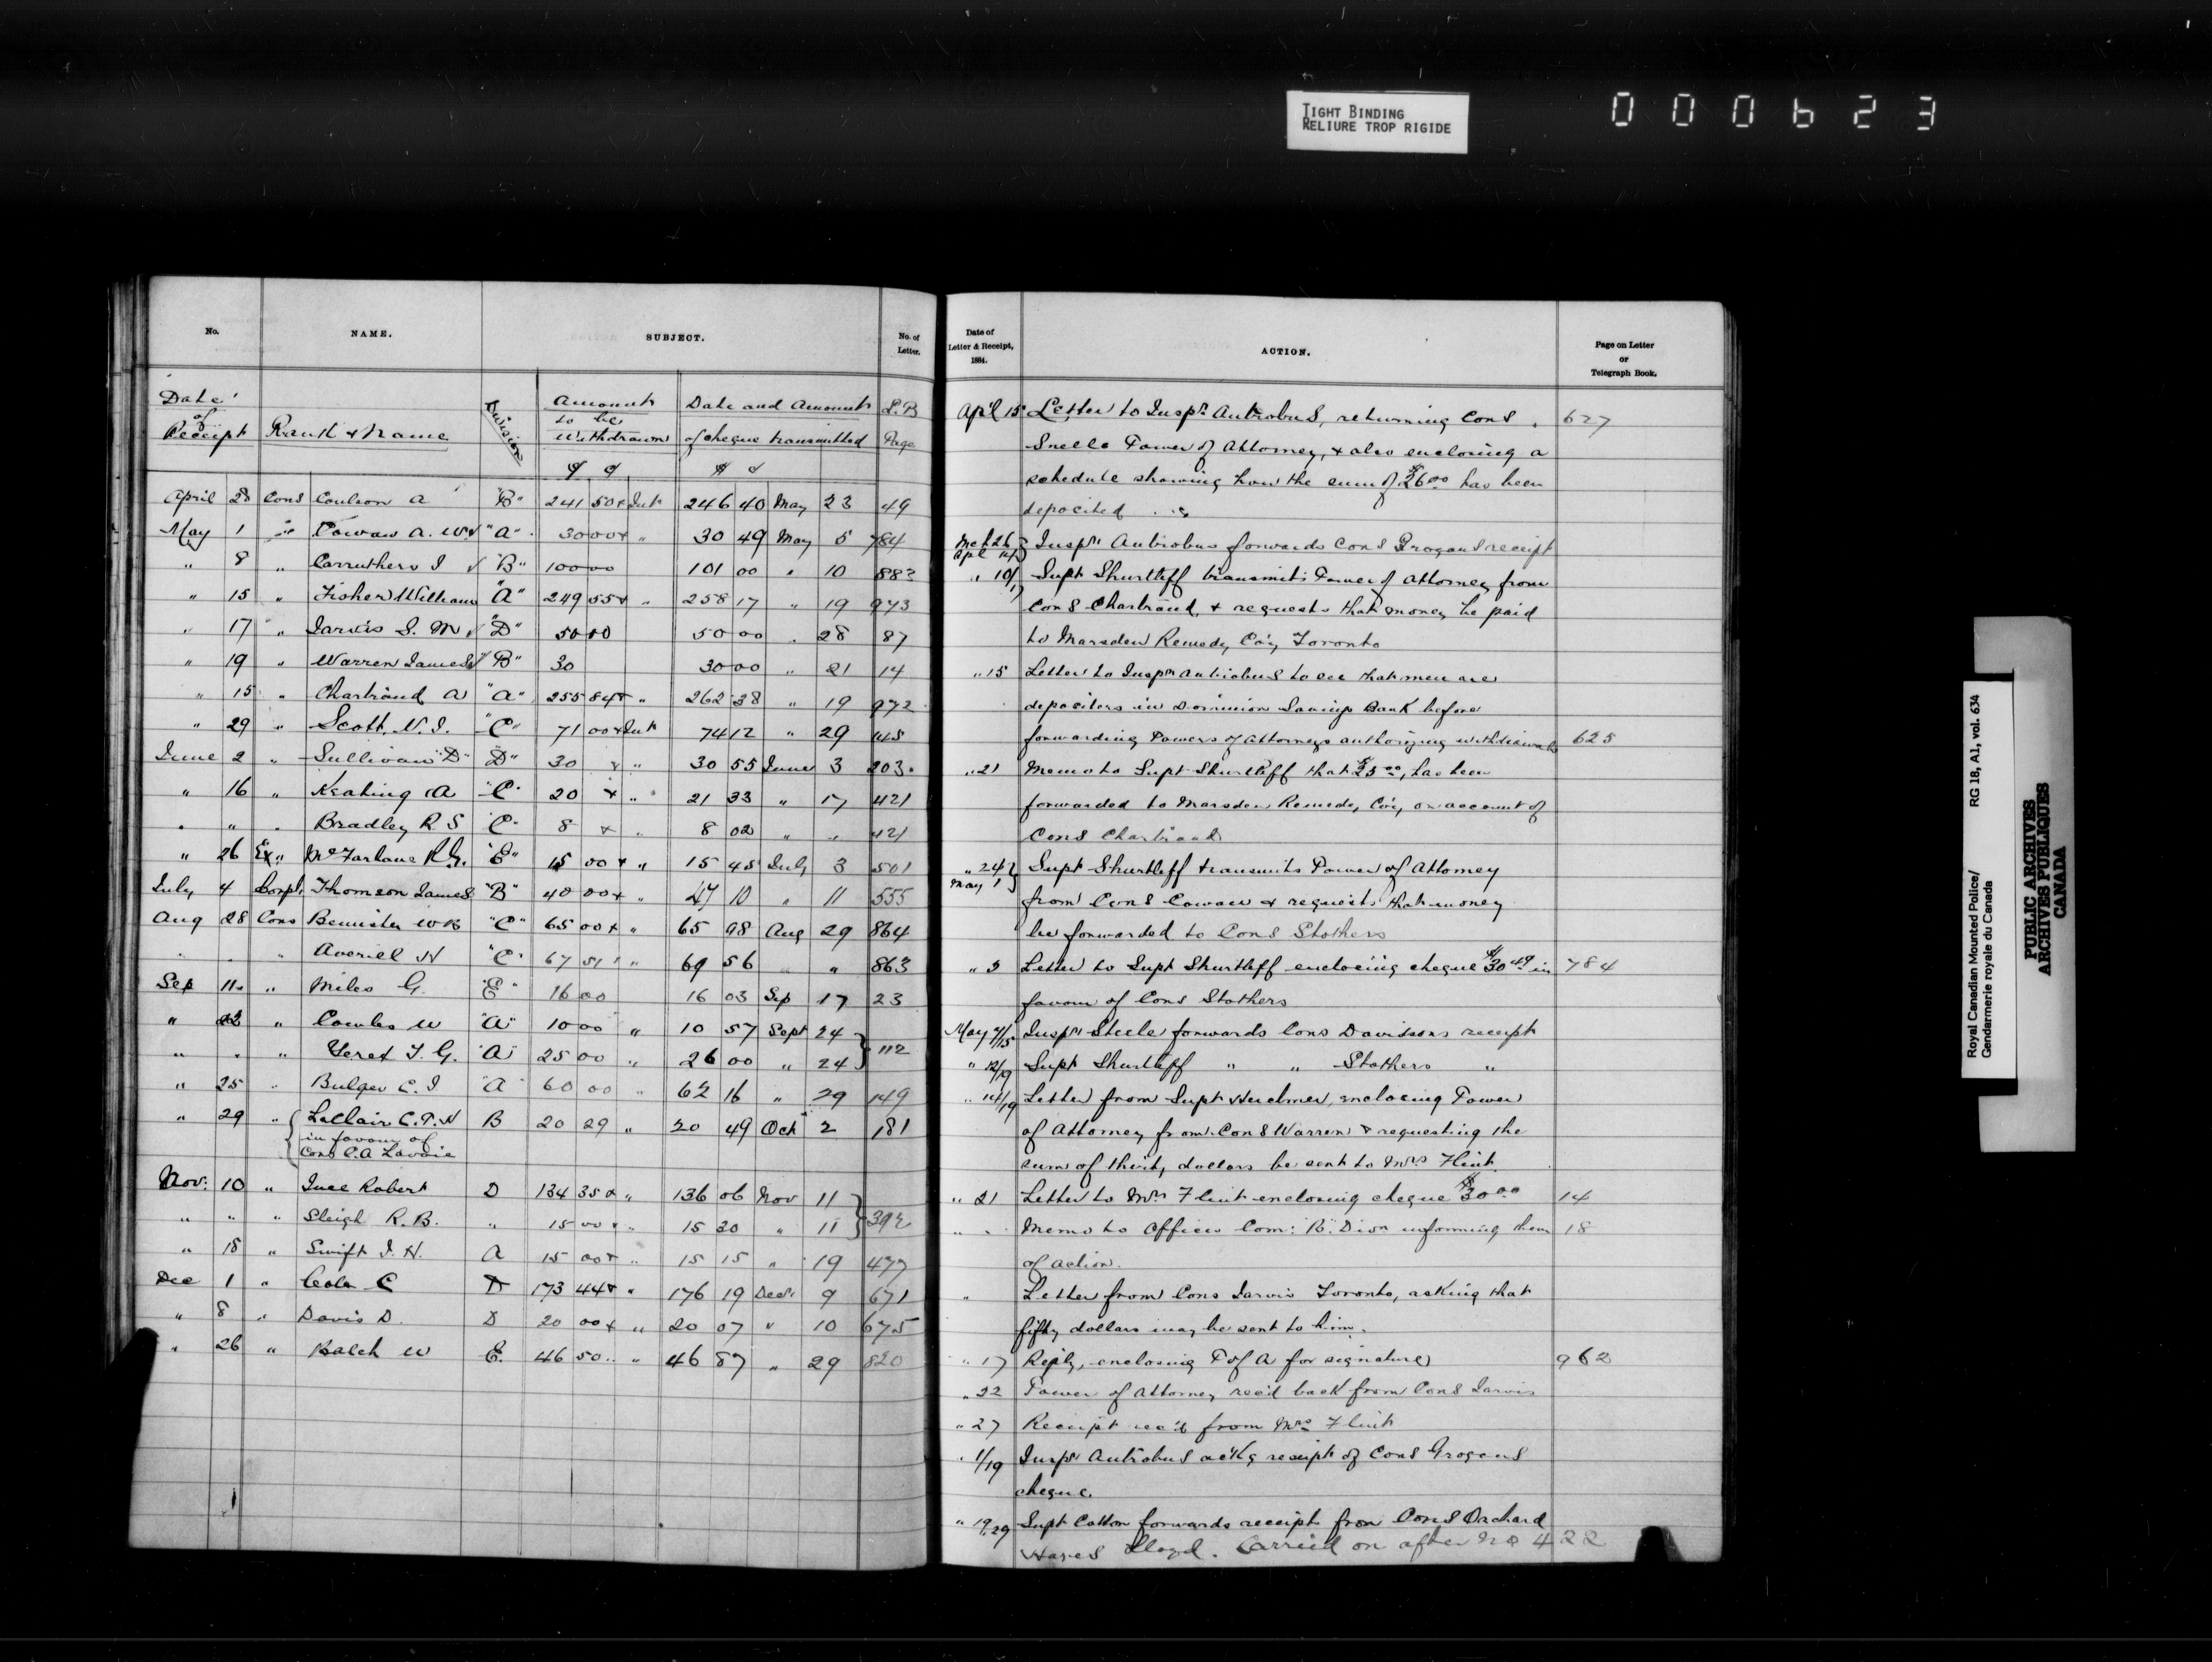 TIGHT BINDING
RELIURE TROP RIGIDE
000623
No.
NAME.
SUBJECT.
No. of
Letter.
Date
of
Receipt
Rank & Name
Division
Amount
to be
withdrawn
Date and Amount
of cheque transmitted
L.B
Page
$ c
$ c
April 28 Cons Coulson A "B" 241 50 + Int 246 40 May 23 49
May 1 " Cowan A. W. "A" 30 00 + " 30 49 May 5 784
" 8 " Carruthers J "B" 100 00 101 00 " 10 883
" 15 " Fisher William "A" 249 55 + " 258 17 " 19 973
" 17 " Jarvis S. M "D" 50 00 50 00 " 28 87
" 19 " Warren James "B" 30 30 00 " 21 14
" 15 " Chartrand A "A" 255 84 + " 262 38 " 19 972
" 29 " Scott N. J. "C" 71 00 + Int 74 12 " 29
June 2 " Sullivan "D" "D" 30 + " 30 55 June 3 203
" 16 " Keating A "C" 20 + " 21 33 " 17 421
" " " Bradley R. S "C" 8 + " 8 02 " " 421
" 26 Ex " McFarlane R. G. "E" 15 00 + " 15 45 July 3 501
July 4 Corpl. Thomson James "B" 40 00 + " 47 10 " 11 555
Aug 28 Cons Bemister W B "C" 65 00 + " 65 98 Aug 29 864
" " " Averiel H "C" 67 51 " 69 56 " " 863
Sep 11 " Miles G. "E" 16 00 16 03 Sep 17 23
" " Cowles W "A" 10 00 " 10 57 Sept 24
" " " Yeret J. G. "A" 25 00 " 26 00 " 24 } 112
" 25 " Bulger C. J "A" 60 00 " 62 16 " 29 149
" 29 " LeClair C. P. H B 20 29 " 20 49 Oct 2 181
in favour of
Cons C.A Lavoie
Nov. 10 " Ince Robert D 134 35 + " 136 06 Nov 11
" " " Sleigh R. B. " 15 00 + " 15 20 " 11 } 392
" 18 " Swift J. H. A 15 00 + " 15 15 " 19 477
Dec 1 " Cola C D 173 44 + " 176 19 Decr 9 671
" 8 " Davis D. D 20 00 + " 20 07 " 10 675
" 26 " Balch W E. 46 50 " " 46 87 " 29 820
Date of
Letter & Receipt,
1884.
ACTION.
Page on Letter
or
Telegraph Book.
Apl 15 Letter to Inspr Antrobus, returning Cons 627
Snells Power of Attorney, & also enclosing a
schedule showing how the sum of $26 00 has been
deposited
Mch 26 Apl 14 } Inspr Antrobus forwards Cons Grogans receipt
" 10/17 Supt Shurtleff transmits Power of Attorney from
Cons Chartrand, & requests that money be paid
to Marsden Remedy Co'y, Toronto
" 15 Letter to Inspr Antrobus to see that men are
depositers in Dominion Savings Bank before
forwarding Powers of Attorneys authorizing withdrawals 625
" 21 Memo to Supt Shurtleff that $25 00, has been
forwarded to Marsden Remedy Co'y, on account of
Cons Chartrand
" 24 May 1 } Supt Shurtleff transmits Power of Attorney
from Cons Cowan & requests that money
be forwarded to Cons Stothers
" 5 Letter to Supt Shurtleff enclosing cheque $30 49 in 784
favour of Cons Stothers
May 7/15 Inspr Steele forwards Cons Davidsons receipt
" 12/19 Supt Shurtleff " " Stothers "
" 14/19 Letter from Supt Herchmer, enclosing Power
of Attorney from Cons Warren & requesting the
sum of thirty dollars be sent to Mrs Flint
" 21 Letter to Mrs Flint enclosing cheque $30 00 14
" " Memo to Officer Com: "B" Divn informing them 18
of action.
" Letter from Cons Jarvis Toronto, asking that
fifty dollars may be sent to him.
" 17 Reply, enclosing P of A for signature 962
" 22 Power of Attorney rec'd back from Cons Jarvis
" 27 Receipt rec'd from Mrs Flint
" 1/19 Inspr Antrobus ack'g receipt of Cons Grogans
cheque.
" 19/29 Supt Cotton forwards receipts from Cons Orchard
Hayes Lloyd. Carried on after No 422
Royal Canadian Mounted Police/ RG 18, A1, vol. 634
Gendarmerie royale du Canada
PUBLIC ARCHIVES
ARCHIVES PUBLIQUES
CANADA